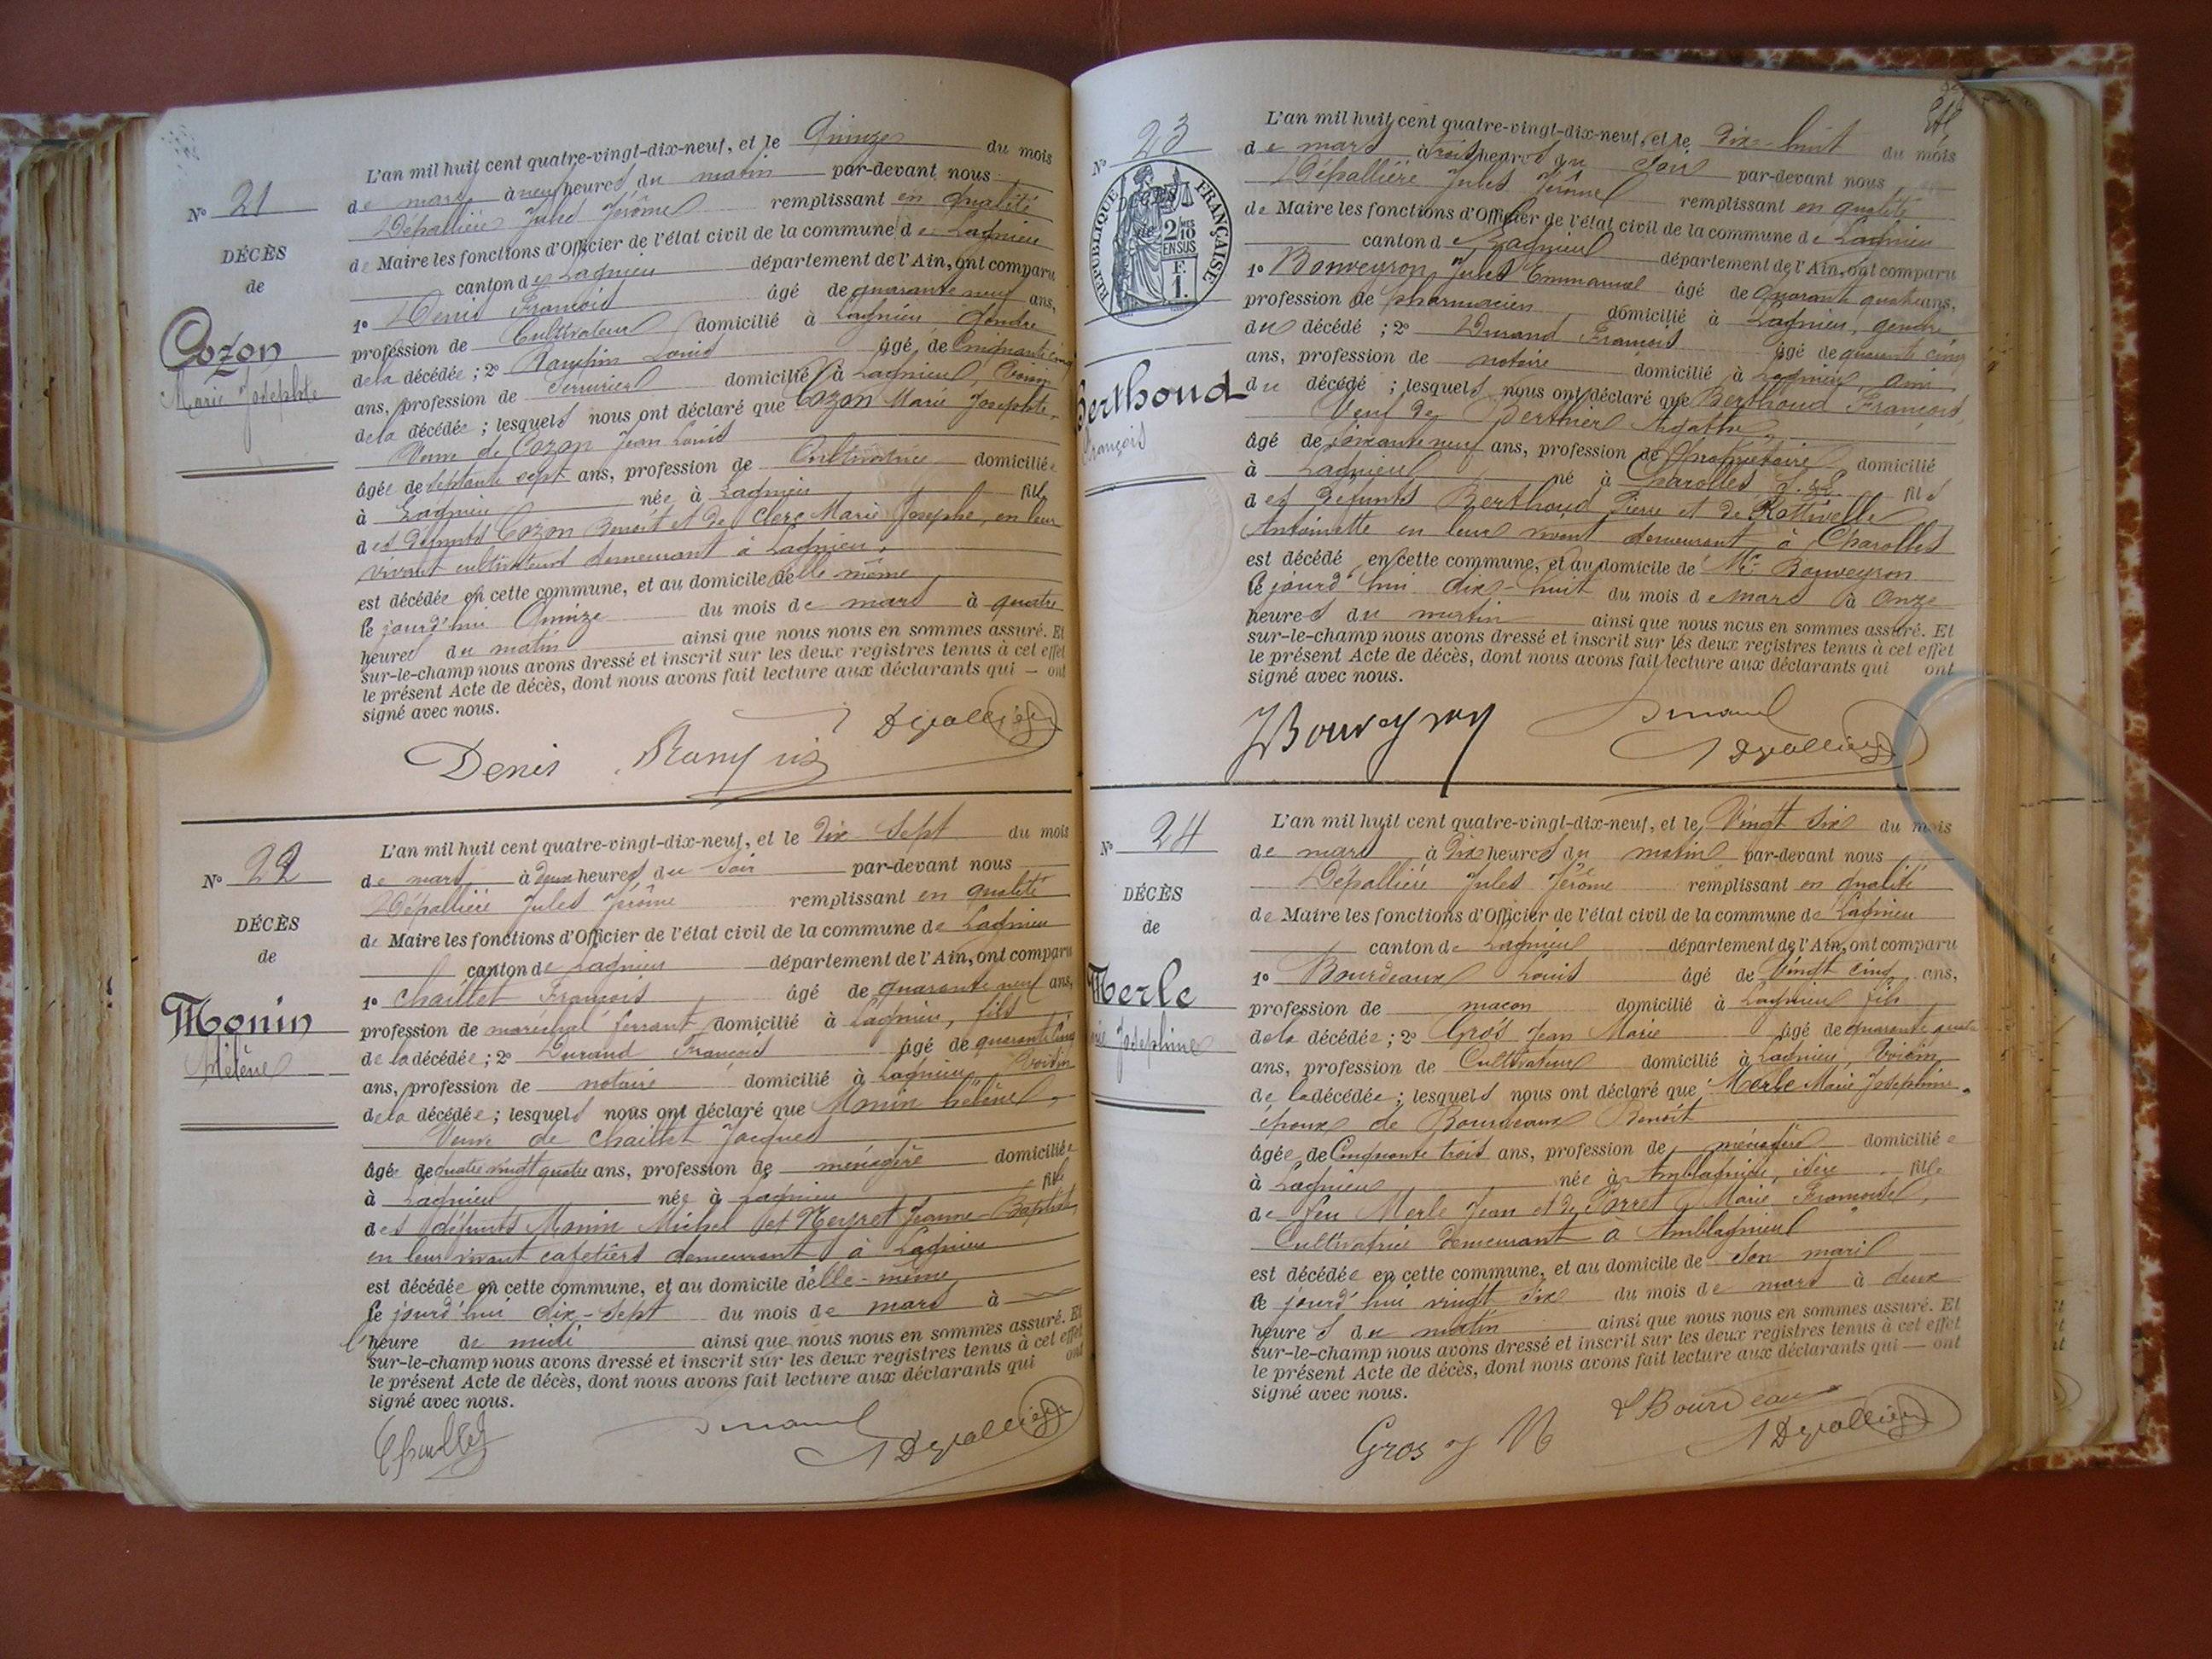 L'an mil huit cent quatre-vingt-dix-neuf, et le Quinze du mois
de mars à neuf heures du matin par-devant nous
Dépallière Jules Jérôme remplissant en qualité
de Maire les fonctions d'Officier de l'état civil de la commune de Lagnieu
canton de Lagnieu département de l'Ain, ont comparu
1º Denis François âgé de quarante neuf ans,
profession de Cultivateur domicilié à Lagnieu gendre
de la décédée ; 2º Louis âgé de cinquante cinq
ans, profession de Serrurier domicilié à Lagnieu, voisin
de la décédée ; lesquels nous ont déclaré que Cozon Marie Josephte,
Veuve de Cozon Jean Louis
âgée de septante sept ans, profession de Cultivatrice domiciliée
à Lagnieu née à Lagnieu fille
des défunts Cozon Benoît et de Clerc Marie Josephe, en leur
vivant cultivateurs demeurant à Lagnieu,
est décédée en cette commune, et au domicile de elle même
le jourd'hui Quinze du mois de mars à quatre
heures du matin ainsi que nous nous en sommes assuré. Et
sur-le-champ nous avons dressé et inscrit sur les deux registres tenus à cet effet
le présent Acte de décès, dont nous avons fait lecture aux déclarants qui — ont
signé avec nous.
Denis
Nº 21
DÉCÈS
de
Cozon
Marie Josephte
L'an mil huit cent quatre-vingt-dix-neuf, et le Dix Sept du mois
de mars à deux heures du soir par-devant nous
Dépallière Jules Jérôme remplissant en qualité
de Maire les fonctions d'Officier de l'état civil de la commune de Lagnieu
canton de Lagnieu département de l'Ain, ont comparu
1º Chaillet François âgé de quarante neuf ans,
profession de maréchal ferrant domicilié à Lagnieu, fils
de la décédée ; 2º Durand François âgé de quarante cinq
ans, profession de notaire domicilié à Lagnieu Voisin
de la décédée ; lesquels nous ont déclaré que Monin hélène,
Veuve de Chaillet Jacques
âgée de quatre vingt quatre ans, profession de ménagère domiciliée
à Lagnieu née à Lagnieu fille
des défunts Monin Michel et Neyret Jeanne-Baptiste
en leur vivant cafetiers demeurant à Lagnieu
est décédée en cette commune, et au domicile d'elle-même
le jourd'hui dix-sept du mois de mars à
l'heure de midi ainsi que nous nous en sommes assuré. Et
sur-le-champ nous avons dressé et inscrit sur les deux registres tenus à cet effet
le présent Acte de décès, dont nous avons fait lecture aux déclarants qui ont
signé avec nous.
Nº 22
DÉCÈS
de
Monin
Hélène
L'an mil huit cent quatre-vingt-dix-neuf, et le Dix-huit du mois
de mars à trois heures du soir par-devant nous
Dépallière Jules Jérôme remplissant en qualité
de Maire les fonctions d'Officier de l'état civil de la commune de Lagnieu
canton de Lagnieu département de l'Ain, ont comparu
1º Bouveyron Jules Emmanuel âgé de quarante quatre ans,
profession de pharmacien domicilié à Lagnieu, gendre
du décédé ; 2º Durand François âgé de quarante cinq
ans, profession de notaire domicilié à Lagnieu, ami
du décédé ; lesquels nous ont déclaré que Berthoud François,
Veuf de Berthier Agathe,
âgé de ans, profession de Propriétaire domicilié
à Lagnieu né à Charolles S. &L. fils
des défunts Berthoud Pierre et de Rattivelle
Antoinette en leur vivant demeurant à Charolles
est décédé en cette commune, et au domicile de Mr Bouveyron
le jourd'hui dix-huit du mois de mars à onze
heures du matin ainsi que nous nous en sommes assuré. Et
sur-le-champ nous avons dressé et inscrit sur les deux registres tenus à cet effet
le présent Acte de décès, dont nous avons fait lecture aux déclarants qui ont
signé avec nous.
JBouveyron Durand
Nº 23
RÉPUBLIQUE FRANÇAISE
2/10 EN SUS
F.
1.
Berthoud
François
L'an mil huit cent quatre-vingt-dix-neuf, et le Vingt Six du mois
de mars à Dix heures du matin par-devant nous
Dépallière Jules Jérôme remplissant en qualité
de Maire les fonctions d'Officier de l'état civil de la commune de Lagnieu
canton de Lagnieu département de l'Ain, ont comparu
1º Bourdeaux Louis âgé de Vingt cinq ans,
profession de maçon domicilié à Lagnieu fils
de la décédée ; 2º Gros Jean Marie âgé de quarante quatre
ans, profession de Cultivateur domicilié à Lagnieu, Voisin
de la décédée ; lesquels nous ont déclaré que Merle Marie Joséphine
épouse de Bourdeaux Benoît
âgée de Cinquante trois ans, profession de ménagère domiciliée
à Lagnieu née à Amblagnieu, isère fille
de feu Merle Jean et de Porret Marie Françoise,
Cultivatrice demeurant à Amblagnieu
est décédée en cette commune, et au domicile de son mari
le jourd'hui vingt six du mois de mars à deux
heures du matin ainsi que nous nous en sommes assuré. Et
sur-le-champ nous avons dressé et inscrit sur les deux registres tenus à cet effet
le présent Acte de décès, dont nous avons fait lecture aux déclarants qui — ont
signé avec nous.
Gros J M LBourdeaux
Nº 24
DÉCÈS
de
Merle
Joséphine